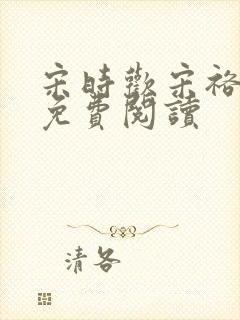 宋時歡宋裕
免費閱讀
清各